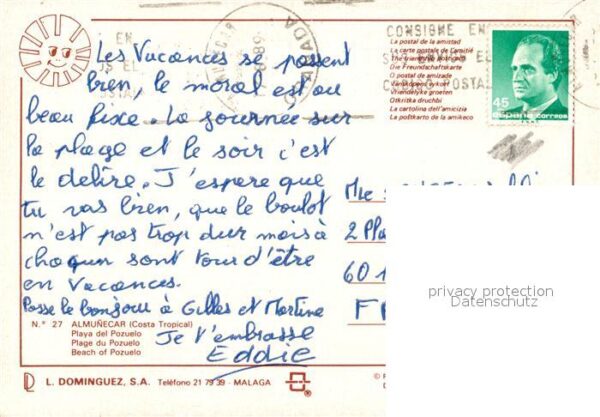 Les Vacances se passent
bien, le moral est au
beau fixe. La journee sur
la plage et le soir c'est
le delire. J'espere que
tu vas bien, que le boulot
n'est pas trop dur mais à
chaqun sont tour d'être
en vacances.
Passe le bonjour à Gilles et Martine
Je t'embrasse
Eddie
Mle
2 Pla
60 1
F
CONSIGNE EN
EL
POSTA
EN
EL
La postal de la amistad
La carte postale de l'amitié
The friendship postcard
Die Freundschaftskarte
O postal de amizade
Vänskapens kort
Vriendelijke groeten
Otkritka druchbi
La cartolina dell'amicizia
La poŝtkarto de la amikeco
45
España correos
privacy protection
Datenschutz
N.º 27 ALMUÑECAR (Costa Tropical)
Playa del Pozuelo
Plage du Pozuelo
Beach of Pozuelo
L. DOMINGUEZ, S.A. Teléfono 21 79 39 - MALAGA